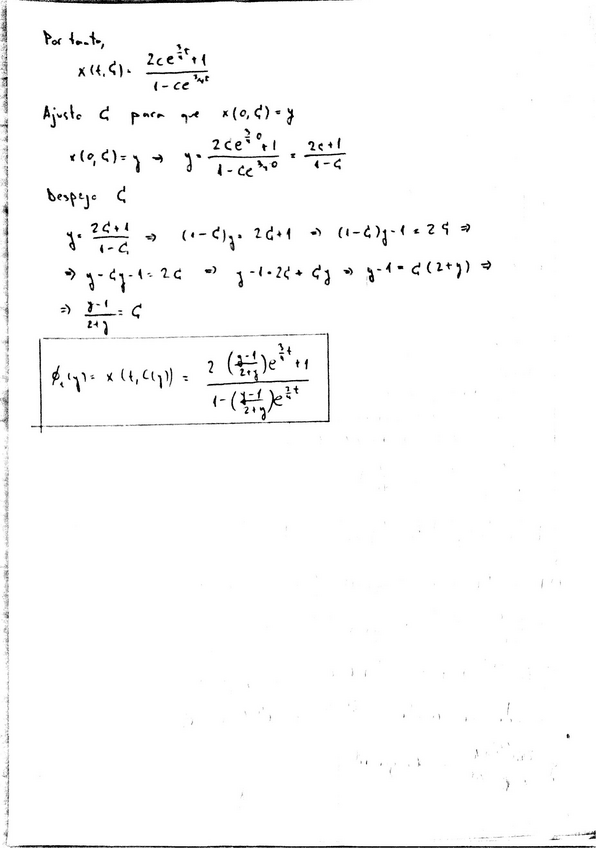 Por tanto,
x(t,C) = \frac{2Ce^{\frac{3}{4}t}+1}{1-Ce^{\frac{3}{4}t}}
Ajusto C para que x(0,C) = y
x(0,C) = y → y = \frac{2Ce^{\frac{3}{4}0}+1}{1-Ce^{\frac{3}{4}0}} = \frac{2C+1}{1-C}
Despejo C
y = \frac{2C+1}{1-C} ⇒ (1-C)y = 2C+1 ⇒ (1-C)y-1 = 2C ⇒
⇒ y-Cy-1 = 2C ⇒ y-1 = 2C+Cy ⇒ y-1 = C(2+y) ⇒
⇒ \frac{y-1}{2+y} = C
ϕ_t(y) = x(t,C(y)) = \frac{2(\frac{y-1}{2+y})e^{\frac{3}{4}t}+1}{1-(\frac{y-1}{2+y})e^{\frac{3}{4}t}}